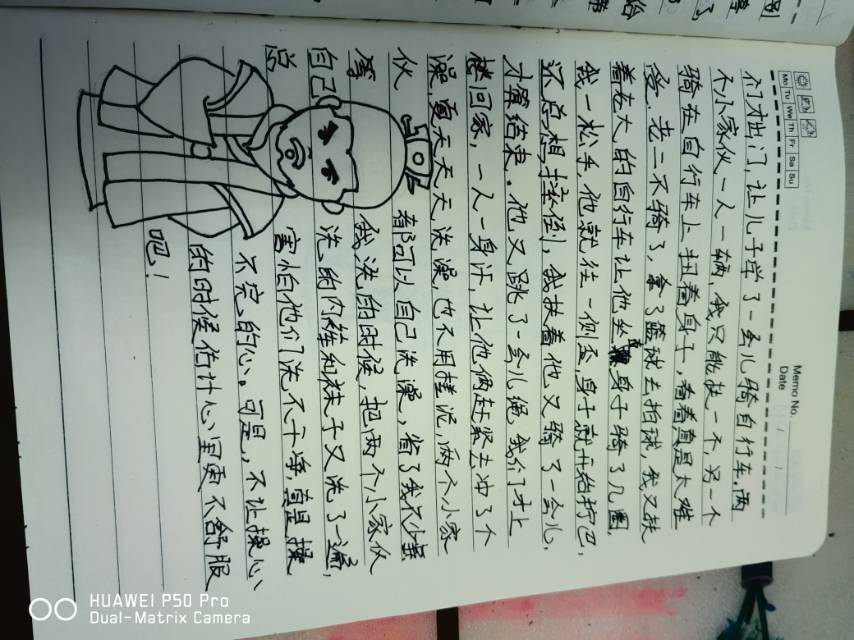 Memo No.
Date / /
Mo Tu We Th Fr Sa Su
们才出门,让儿子学了一会儿骑自行车,两
个小家伙一人一辆,我只能扶一个,另一个
骑在自行车上扭着身子,看着真是太难
受,老二不骑了,拿了篮球去拍球,我又扶
着老大的自行车让他坐直身子骑了几圈,
我一松手,他就往一侧歪,身子就开始拧巴,
还总想摔倒,我扶着他又骑了一会儿,
才算结束。他又跳了一会儿绳,我们才上
楼回家,一人一身汗,让他俩赶紧去冲了个
澡,夏天天天洗澡,也不用搓泥,两个小家
伙都可以自己洗澡,省了我不少事
等我洗的时候,把两个小家伙
自己洗的内裤和袜子又洗了一遍,
总害怕他们洗不干净,真是操
不完的心。可是,不让操心
的时候估计心里更不舒服
吧!
HUAWEI P50 Pro
Dual-Matrix Camera